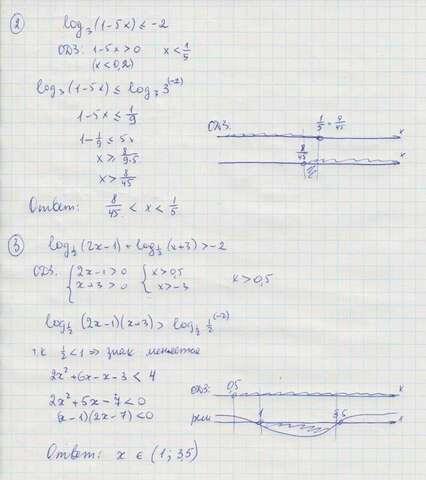 ② log₃(1-5x) ≤ -2
ОДЗ: 1-5x>0 x < 1/5
(x<0,2)
log₃(1-5x) ≤ log₃ 3^(-2)
1-5x ≤ 1/9
1-1/9 ≤ 5x
x ≥ 8/9·5
x > 8/45
ОДЗ: 1/5 = 9/45 x
8/45 x
Ответ: 8/45 < x < 1/5
③ log_{1/2}(2x-1) + log_{1/2}(x+3) > -2
ОДЗ. { 2x-1>0 { x>0,5 x>0,5
x+3>0 x>-3
log_{1/2}(2x-1)(x+3) > log_{1/2} 1/2^(-2)
т.к 1/2<1 ⇒ знак меняется
2x²+6x-x-3 < 4
2x²+5x-7<0
(x-1)(2x-7)<0
ОДЗ: 0,5 x
реш 1 3,5 x
Ответ: x ∈ (1; 3,5)